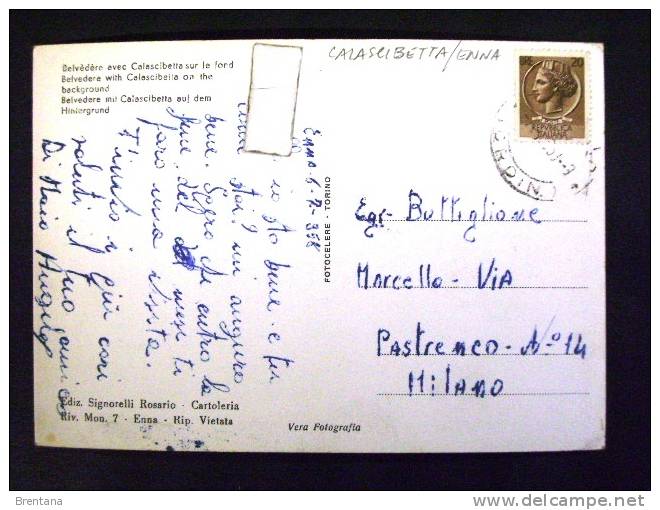 Belvédère avec Calascibetta sur le fond
Belvedere with Calascibetta on the
background
Belvedere mit Calascibetta auf dem
Hintergrund
CALASCIBETTA/ENNA
20
REPUBBLICA
ITALIANA
Enna
io sto bene e tu
mi auguro
bene. Spero che entro la
fine del mese ti
faro una visita.
T'invio i più cari
saluti il tuo amico
Di Maio
FOTOCELERE - TORINO
Egr. Buttiglione
Marcello - Via
Pastrenco - N.º 14
Milano
Ediz. Signorelli Rosario - Cartoleria
Riv. Mon. 7 - Enna - Rip. Vietata
Vera Fotografia
Brentana
delcampe.net